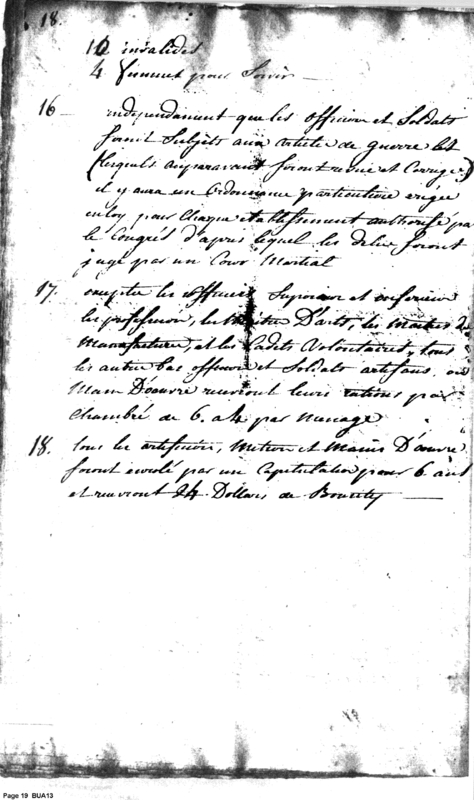 18.
10 invalides
4 femmes pour Servir —
16 — independament que les officiers et Soldats
Seront Subjets aux article de guerre let
(lesquels auparavant seront revue et Corrigé)
il y aura un Ordonnance particuliere erigée
en loy pour Chaque etablissement authorisé par
le Congrés d'apres lequel les delits seront
jugé par un Cour Martial
17. excepter les officiers Superieur et inferieur
les professeurs, les maitre D'arts, les Maitres de
Manufacture, et les Cadets Volontaires, tous
les autre bas officiers et Soldats artisans, ou
Main D'oeuvre recevront leurs rations par
Chambré de 6. a 4 par menage
18. tous les artificiers, et Mains D'oeuvre
Seront enrolé par un Capitulation pour 6 ans
et recevront 24 Dollars de Bounty —
Page 19 BUA13